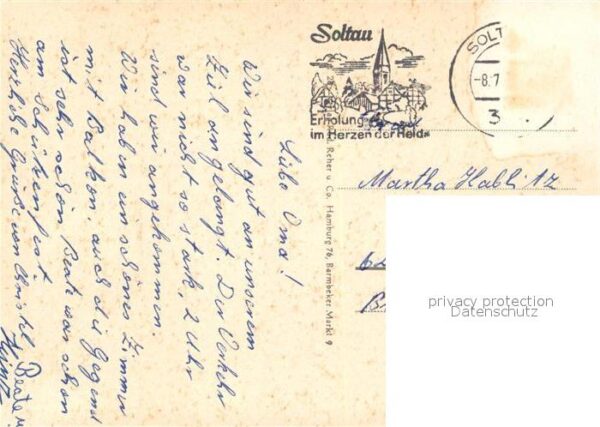 Liebe Oma!
Wir sind gut an unserem
Ziel angelangt. Der Verkehr
war nicht so stark, 2 Uhr
sind wir angekommen.
Wir haben ein schönes Zimmer
mit Balkon. auch die Gegend
ist sehr schön. Beate war schon
am Schützenfest
Herzliche Grüße von Christel Beate u.
Heinz
Soltau
Erholung
im Herzen der Heide
SOLT
-8.7
3
Reher u. Co. Hamburg 76, Barmbeker Markt 9
Martha Hablitz
privacy protection
Datenschutz